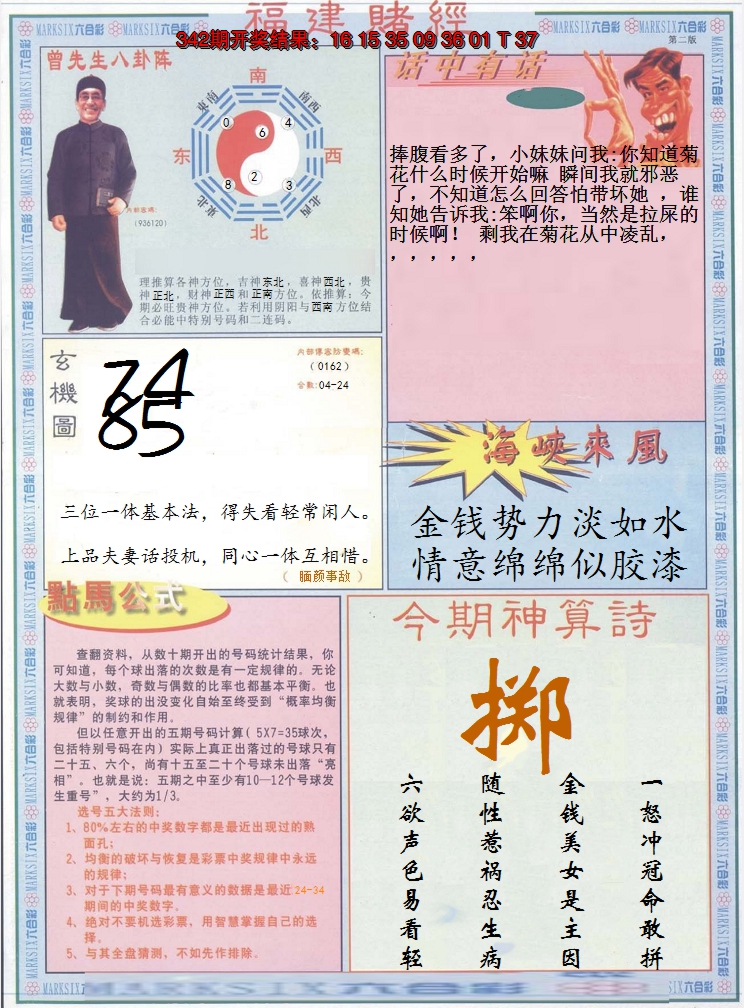 福建賭經
342期开奖结果：16 15 35 09 36 01 T 37
MARKSIX六合彩
第二版
曾先生八卦阵
南
东南
南西
东
西
东北
北西
北
0
6
4
8
2
3
内部密碼:
(936120)
理推算各神方位，吉神东北，喜神西北，贵
神正北，财神正西和正南方位。依推算：今
期必旺贵神方位。若利用阴阳与西南方位结
合必能中特别号码和二连码。
话中有话
捧腹看多了，小妹妹问我:你知道菊
花什么时候开始嘛 瞬间我就邪恶
了，不知道怎么回答怕带坏她 ，谁
知她告诉我:笨啊你，当然是拉屎的
时候啊！ 剩我在菊花从中凌乱，
，，，，，
玄機圖
74
85
(0162)
合数:04-24
三位一体基本法，得失看轻常闲人。
上品夫妻话投机，同心一体互相惜。
（ 腼颜事敌 ）
海峽來風
金钱势力淡如水
情意绵绵似胶漆
點馬公式
查翻资料，从数十期开出的号码统计结果，你
可知道，每个球出落的次数是有一定规律的。无论
大数与小数，奇数与偶数的比率也都基本平衡。也
就表明，奖球的出没变化自始至终受到“概率均衡
规律”的制约和作用。
但以任意开出的五期号码计算( 5X7=35球次，
包括特别号码在内)实际上真正出落过的号球只有
二十五、六个，尚有十五至二十个号球未出落“亮
相”。也就是说：五期之中至少有10—12个号球发
生重号”，大约为1/3。
选号五大法则:
1、80%左右的中奖数字都是最近出现过的熟
面孔；
2、均衡的破坏与恢复是彩票中奖规律中永远
的规律；
3、对于下期号码最有意义的数据是最近24-34
期间的中奖数字。
4、绝对不要机选彩票，用智慧掌握自己的选
择。
5、与其全盘猜测，不如先作排除。
今期神算詩
掷
一怒冲冠命敢拼
金钱美女是主因
随性惹祸忍生病
六欲声色易看轻